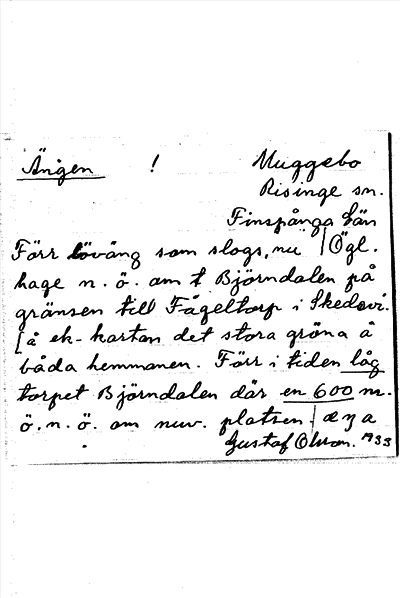 Ängen ! Muggebo
Risinge sn.
Finspånga län
Förr löväng som slogs, nu | Ögl.
hage n. ö. om t Björndalen på
gränsen till Fågeltorp i Skedevi.
[å ek-kartan det stora gröna å
båda hemmanen. Förr i tiden låg
torpet Björndalen där en 600 m.
ö. n. ö. om nuv. platsen.
Gustaf Olson. 1933